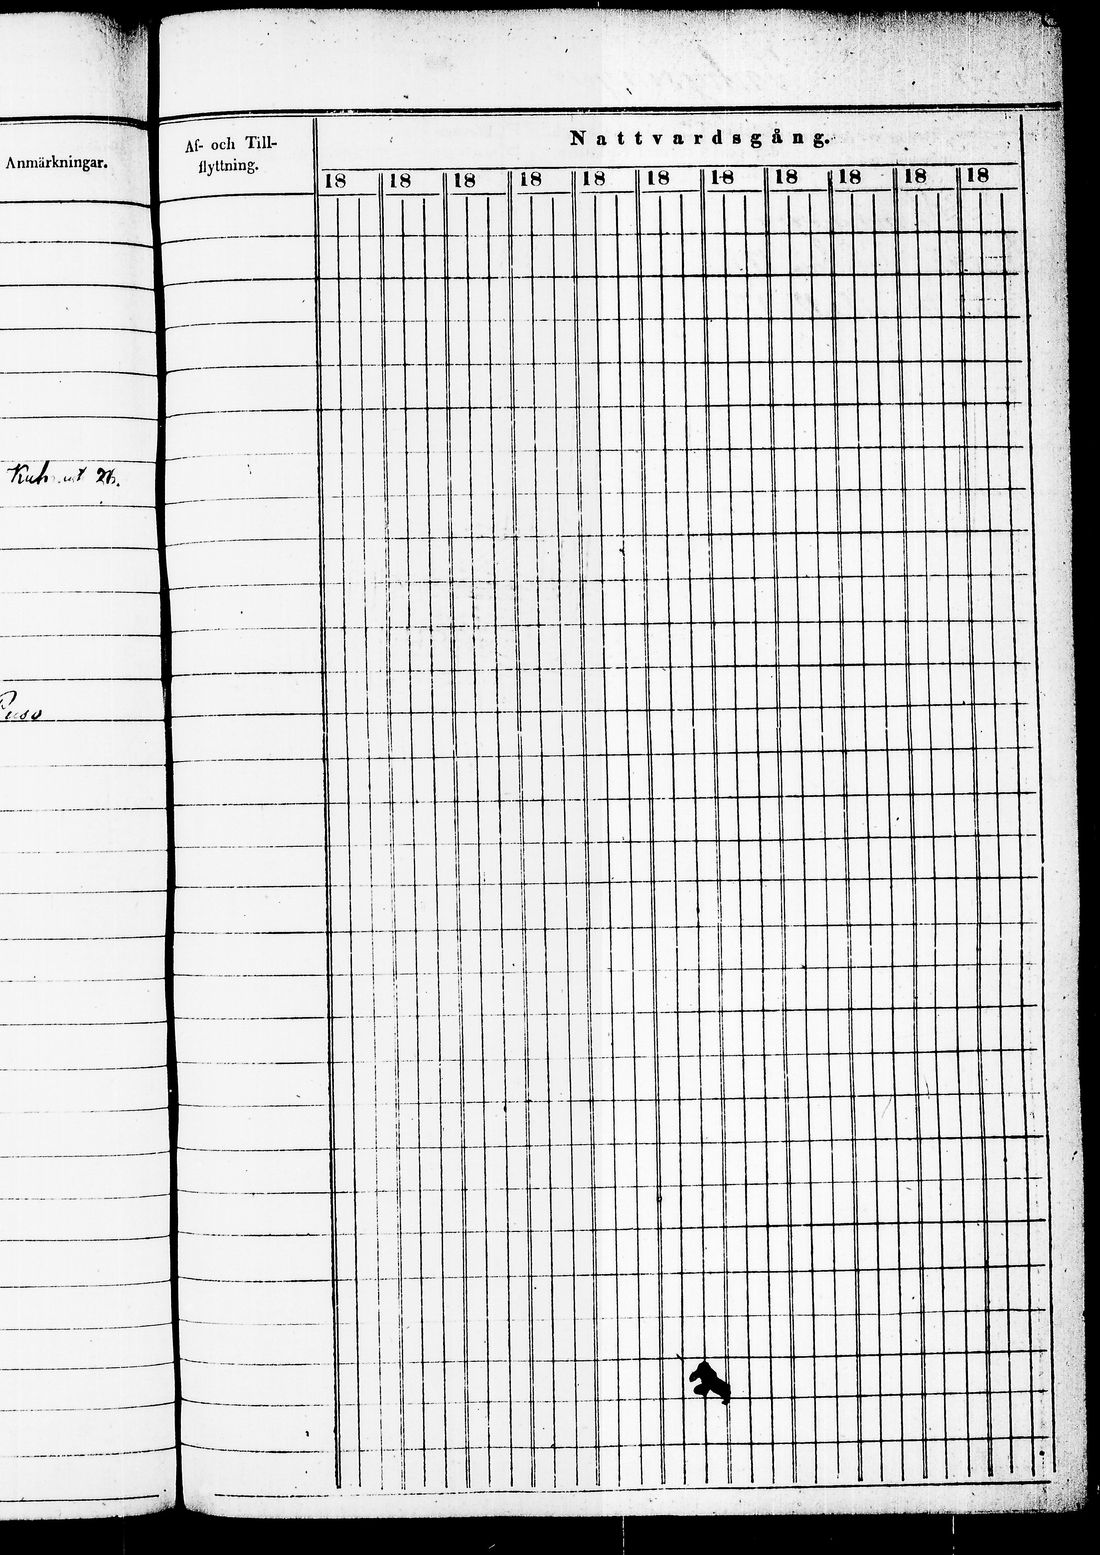 Anmärkningar.
Af- och Till-
flyttning.
Nattvardsgång.
18 18 18 18 18 18 18 18 18 18 18
26.